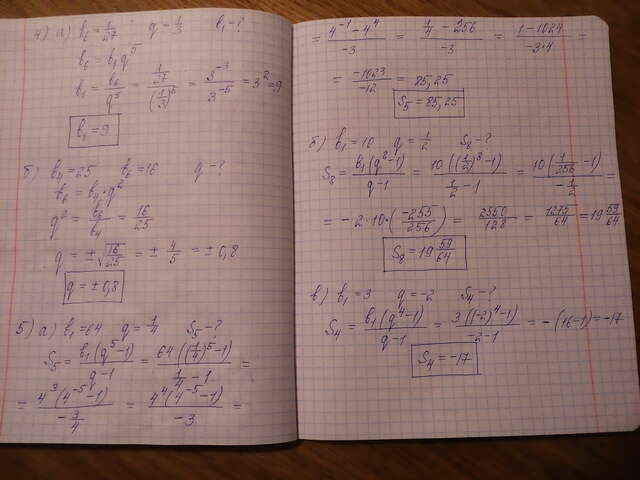 4) а) b₆ = 1/27 q = 1/3 b₁ - ?
b₆ = b₁q⁵
b₁ = b₆/q⁵ = (1/27)/(1/3)⁵ = 3⁻³/3⁻⁵ = 3² = 9
b₁ = 9
б) b₄ = 25 b₆ = 16 q - ?
b₆ = b₄·q²
q² = b₆/b₄ = 16/25
q = ±√(16/25) = ± 4/5 = ±0,8
q = ±0,8
5) а) b₁ = 64 q = 1/4 S₅ - ?
S₅ = b₁(q⁵-1)/(q-1) = 64((1/4)⁵-1)/(1/4 - 1) =
= 4³(4⁻⁵-1)/(-3/4) = 4⁴(4⁻⁵-1)/(-3) =
= (4⁻¹-4⁴)/(-3) = (1/4 - 256)/(-3) = (1-1024)/(-3·4) =
= -1023/-12 = 85,25
S₅ = 85,25
б) b₁ = 10 q = 1/2 S₈ - ?
S₈ = b₁(q⁸-1)/(q-1) = 10((1/2)⁸-1)/(1/2 - 1) = 10(1/256 - 1)/(-1/2) =
= -2·10·(-255/256) = 2550/128 = 1275/64 = 19 59/64
S₈ = 19 59/64
в) b₁ = 3 q = -2 S₄ - ?
S₄ = b₁(q⁴-1)/(q-1) = 3((-2)⁴-1)/(-2-1) = -(16-1) = -17
S₄ = -17